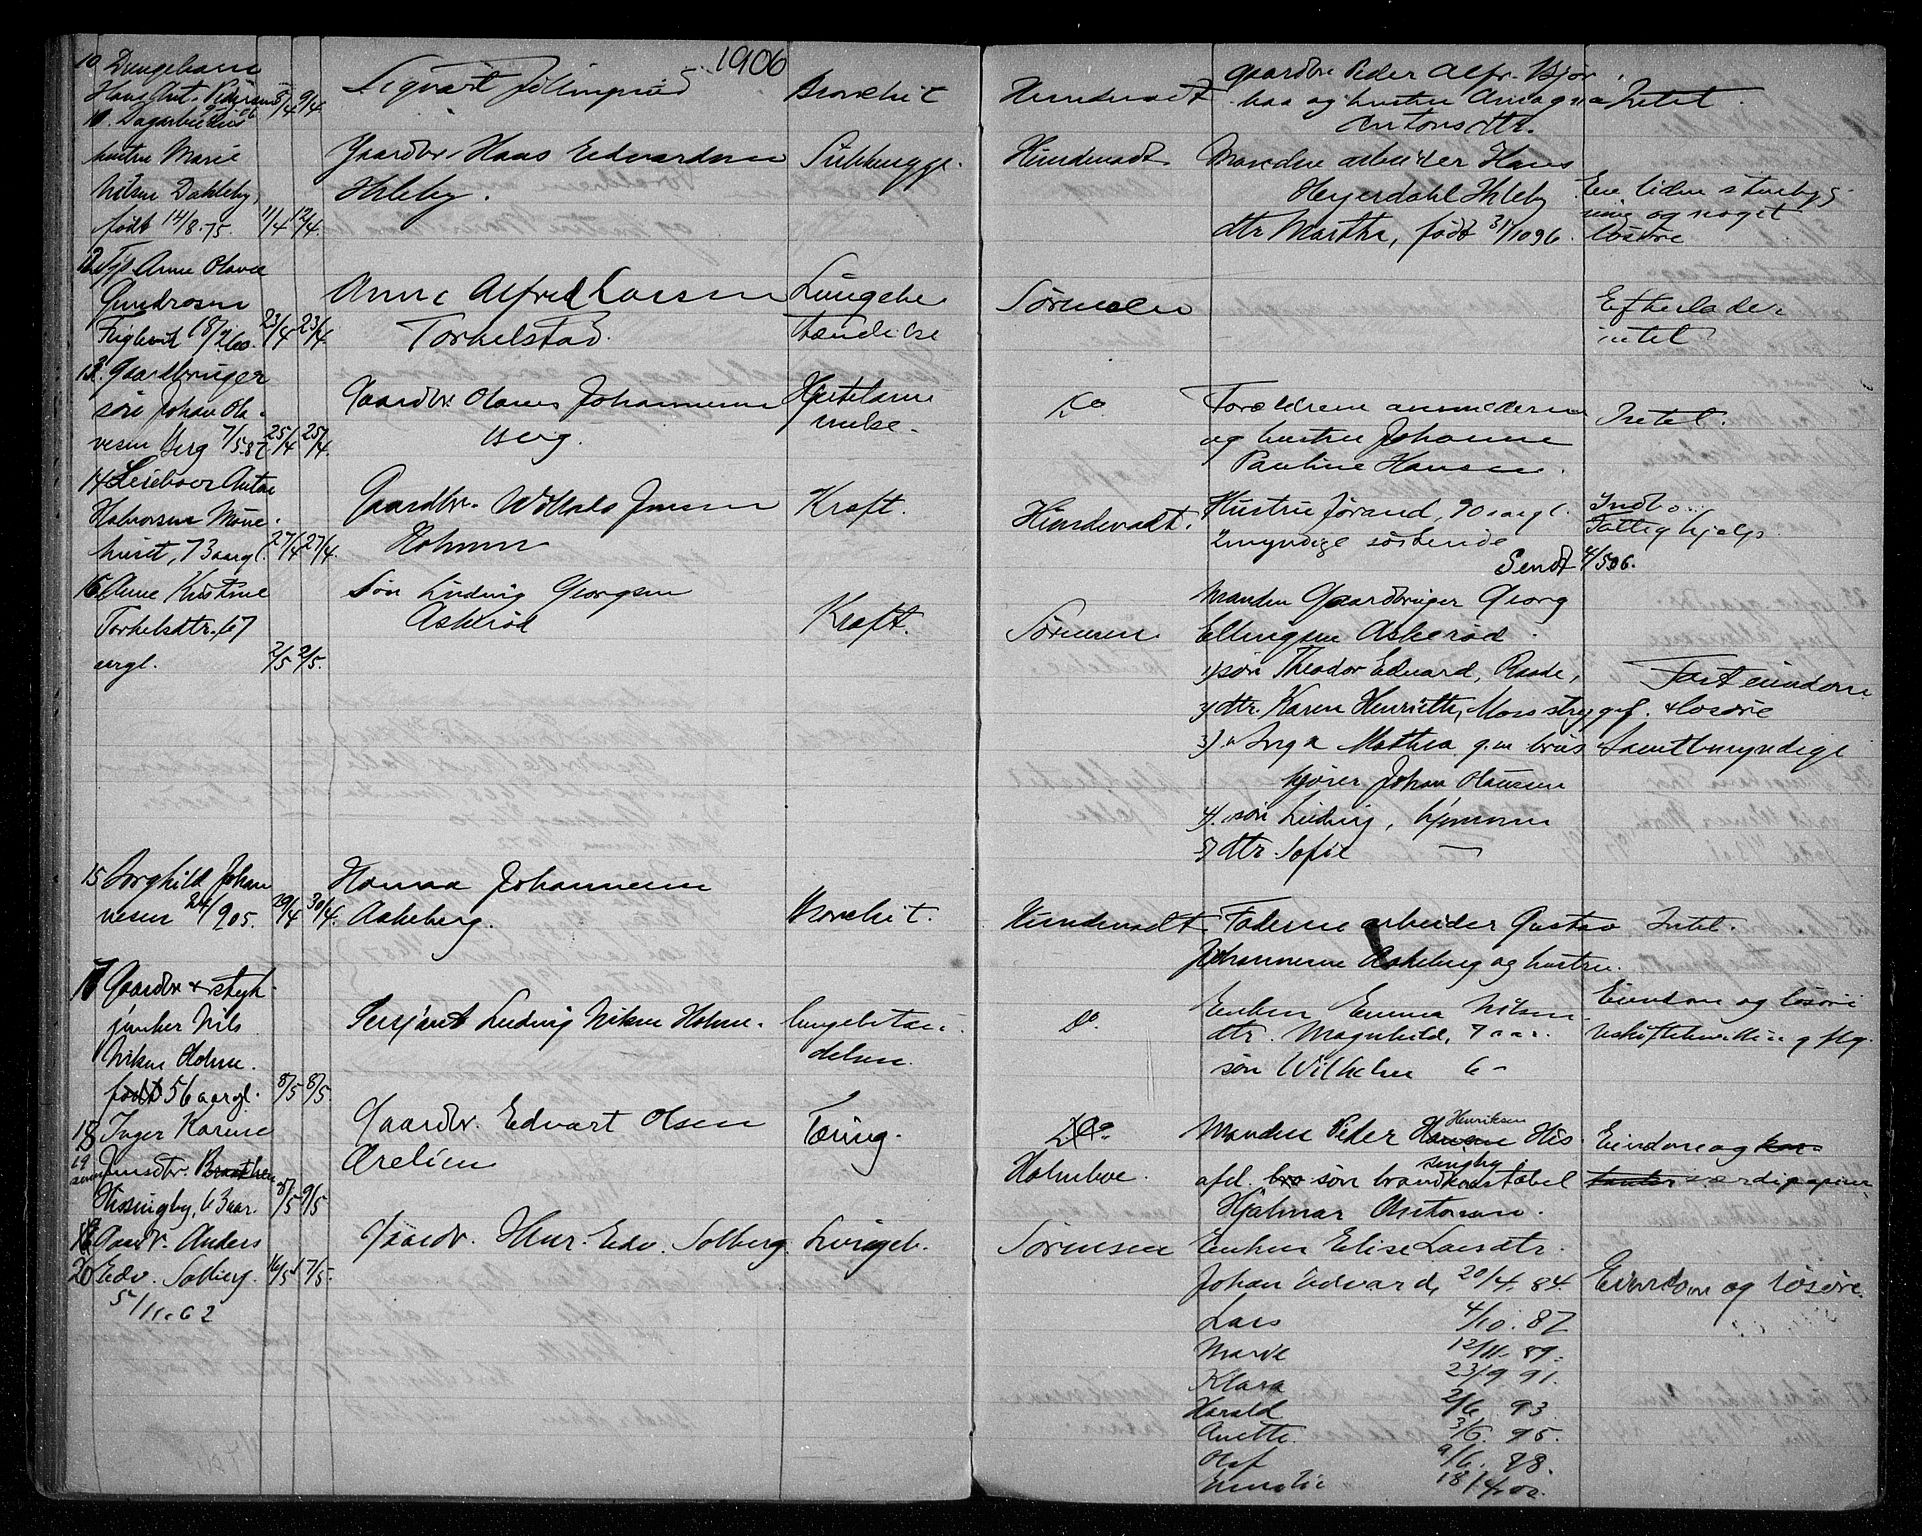 1906
10 Drengebarn
Hans Ant. Pedersen 5/4 9/4
Sigvart
Bronchit
Hundevadt
gaardbr. Peder Alfr. Bjør
baa og hustru Amagna
Antonsdtr.
Intet.
11. Dagarbeiders
hustru Marie
Nilsen Dahleby,
født 14/8.75. 11/4 12/4.
Gaardbr. Hans Edvardsen
Ihleby.
Hundevadt
Manden arbeider Hans
Heyerdahl Ihleby
dtr Marthe, født 31/10 96.
Een liden stuebyg-
ning og noget
løsøre
12. Anne Olava
Gundrosen
18/7 60. 23/4 23/4.
Anne Alfred Larsen
Torkelstad.
Lungebe
tændelse
Sørensen
Efterlader
intet
13. Gaardbruger
søn Johan Ola-
vesen Berg 7/5.87. 25/4 25/4.
Gaardbr. Olaves Johannesen
Berg.
Hjertelam
melse.
Do
Forældrene
og hustru Johanne
Pauline Hansen.
Intet.
14 Leieboer Anton
Halvorsen Møne-
huset, 73 aargl. 27/4 27/4.
Gaardbr. Wilhelm Jensen
Holmen
Kræft.
Hundevadt.
Hustru Jørand, 70 aargl.
2 myndige søskende
Sendt 4/5 06.
Indbo.
Fattighjelp.
16 Anne Kristine
Torkelsdtr. 67
aargl. 2/5 2/5.
Søn Ludvig Georgsen
Askerød
Kræft.
Sørensen
Manden Gaardbruger Georg
Ellingsen Askerød.
1) søn Theodor Edvard, Raade,
2) dtr. Karen Henriette, Moss strygef.
3) " Inga Mathea g.m. brus
kjører Johan Olaussen
4). søn Ludvig, hjemme
5) dtr. Sofie —
Fast eiendom
+ løsøre
Samtl. myndige
15 Borghild Johan
nesen 24/9 05. 29/4 30/4.
Hanna Johannesen
Askeberg.
Bronchit.
Hundevadt
Faderen arbeider Gustav
Johannesen Askeberg og hustru.
Intet.
17 Gaardbr + styk
junker Nils
Nilsen Holme.
født 56 aargl. 8/5 8/5.
Serjant Ludvig Nilsen Holme.
Lungebetæn-
delsen.
Do.
Enken Emma Nilsen
dtr. Magnhild, 7 aar.
søn Wilhelm 6 –
Eiendom og løsøre
18 Inger Karine
19
Jensdtr. Braathen
Hissingby, 63 aar. 8/5 9/5
Gaardbr. Edvart Olsen
Ørelien
Tæring.
Do
Holmboe.
Manden Peder Hansen Henriksen His
singby
afd. bro søn brandkonstabel
Hjalmar Antonsen.
Eiendom og kon
tanter værdipapirer
19 Gaardbr. Anders
20 Edv. Solberg. 16/5 17/5.
5/11.62
Gaardbr. Henr. Edv. Solberg.
Lungeb.
Sørensen
Enken Elise Larsdtr.
Johan Edvard, 20/4. 84.
Lars 4/10. 87
Marie 12/11. 89.
Klara 23/9 91.
Harald 2/6. 93.
Anette 3/6. 95.
Olaf 9/6. 98.
18/4.02.
Eiendom og løsøre.